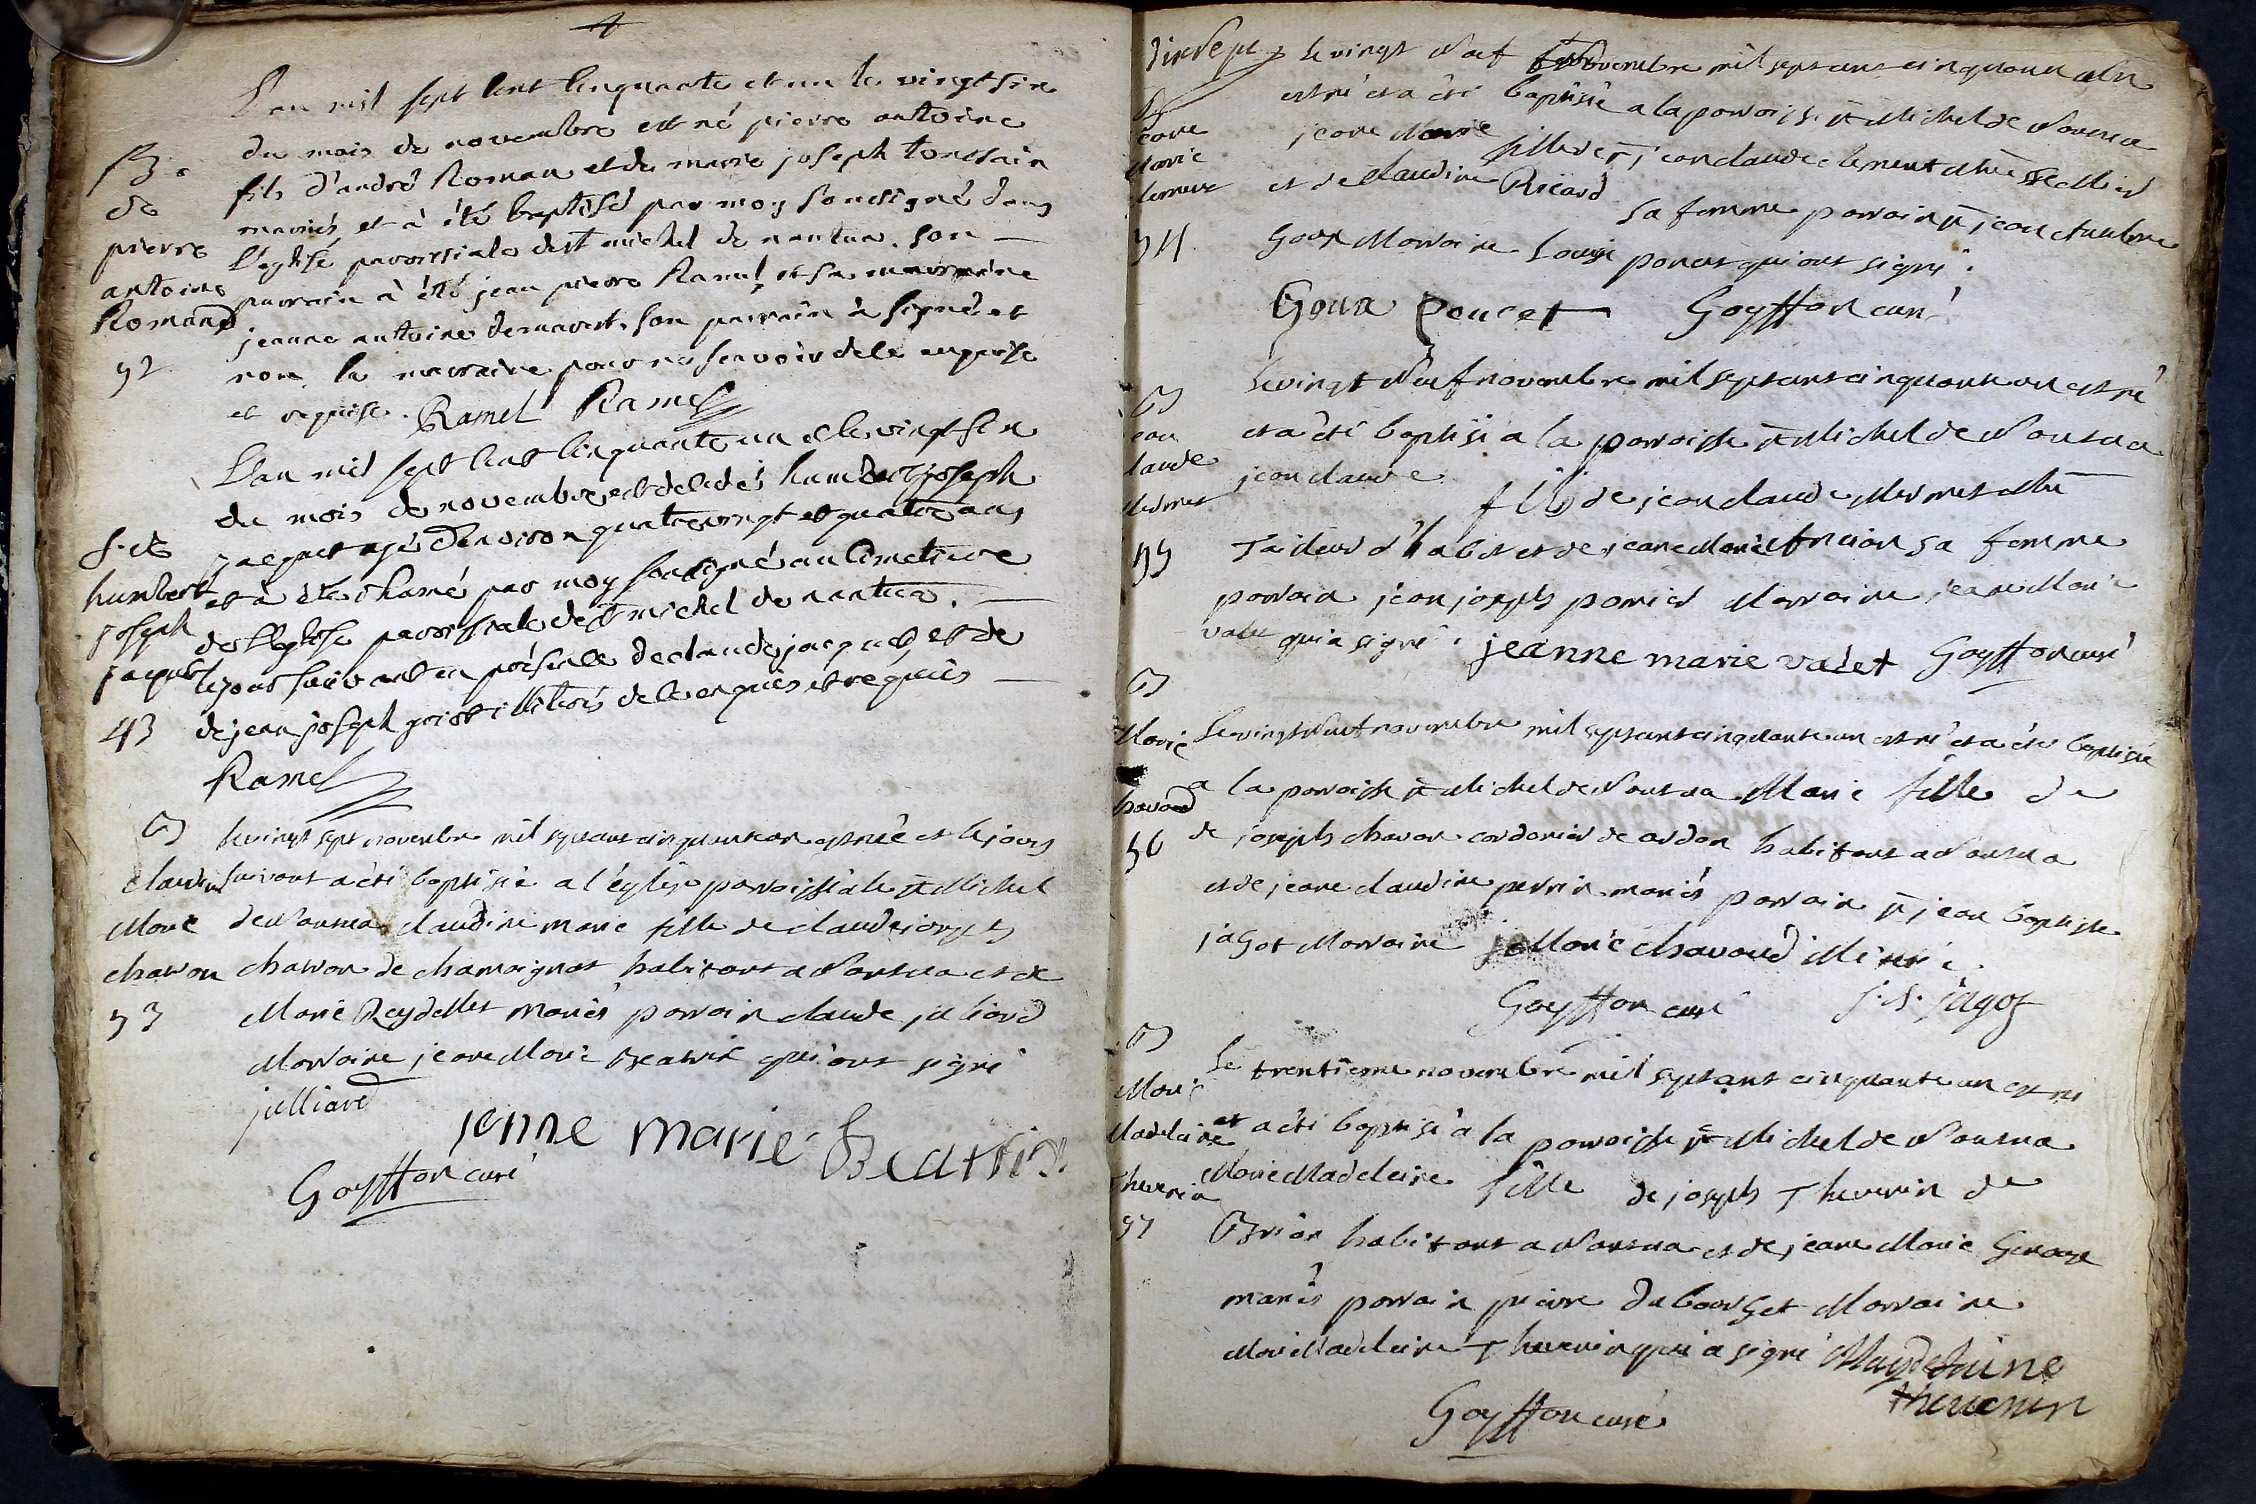 4
L'an mil sept cent cinquante et un le vingt six
du mois de novembre est né pierre antoine
fils d'andré Roman et de marie joseph toussain
mariés et à été baptisé par moy soussigné dans
l'eglise parroissiale de st michel de nantua. son
parrain à été jean pierre Ramel et sa marraine
jeanne antoine son parrain à signé et
non la marraine pour ne sçavoir de ce enquise
et requise. Ramel Ramel
B. de
pierre
antoine
Romand
52
L'an mil sept cent cinquante un et le vingt six
du mois de novembre est decedé humbert joseph
jaquet agé d'environ quatre vingt et quatre ans
et à été inhumé par moy soussigné au cimetiere
de l'eglise parroissiale de st michel de nantua.
le jour suivant en présence de claude jacquet, et de
de jean joseph illiterés de ce enquis et requis
Ramel
S. de
humbert
joseph
jaquet
43
Le vingt sept novembre mil sept cent cinquante un est née et le jour
suivant a été baptisée a l'église parroissiale st Michel
de Nantua claudine marie fille de claude joseph
chavan de chamoignat habitant a Nantua et de
Marie Reydellet mariés parrain claude juliard
Marraine jeane Marie Beatrix qui ont signé
julliard
jenne marie Beatrix
Goyffon curé
B
claudine
Marie
chavan
53
dixsept
Le vingt Neuf Novembre mil sept cent cinquante un
est né et a été baptisée a la parroisse st Michel de Nantua
jeane Marie fille de jean claude clement
et de claudine Ricard sa femme parrain jean
Goux Marraine Louise poncet qui ont signé.
Goux Poncet Goyffon curé
jeane
Marie
clement
54
Le vingt Neuf novembre mil sept cent cinquante un est né
et a été baptisé a la parroisse st Michel de Nantua
jean claude fils de jean claude Mermet
Tailleur d'habit et de jeane Marie sa femme
parrain jean joseph Marraine jeane Marie
valet qui a signé. jeanne marie valet Goyffon curé
B
jean
claude
Mermet
55
Le vingt Neuf novembre mil sept cent cinquante un est né et a été baptisée
a la parroisse st Michel de Nantua Marie fille de
de joseph chavan cordonier de ardon habitant a Nantua
et de jeane claudine perrin mariés parrain jean baptiste
jagot Marraine Marie chavoud
Goyffon curé J. B. jagot
B
Marie
chavoud
56
Le trentieme novembre mil sept cent cinquante un est né
et a été baptisé a la parroisse st Michel de Nantua
Marie Madeleine fille de joseph Thevenin de
Brion habitant a Nantua et de jeane Marie
mariés parrain pierre dubourget Marraine
Marie Madeleine Thevenin qui a signé Magdelaine
thevenin
Goyffon curé
B
Marie
Madelaine
Thevenin
57